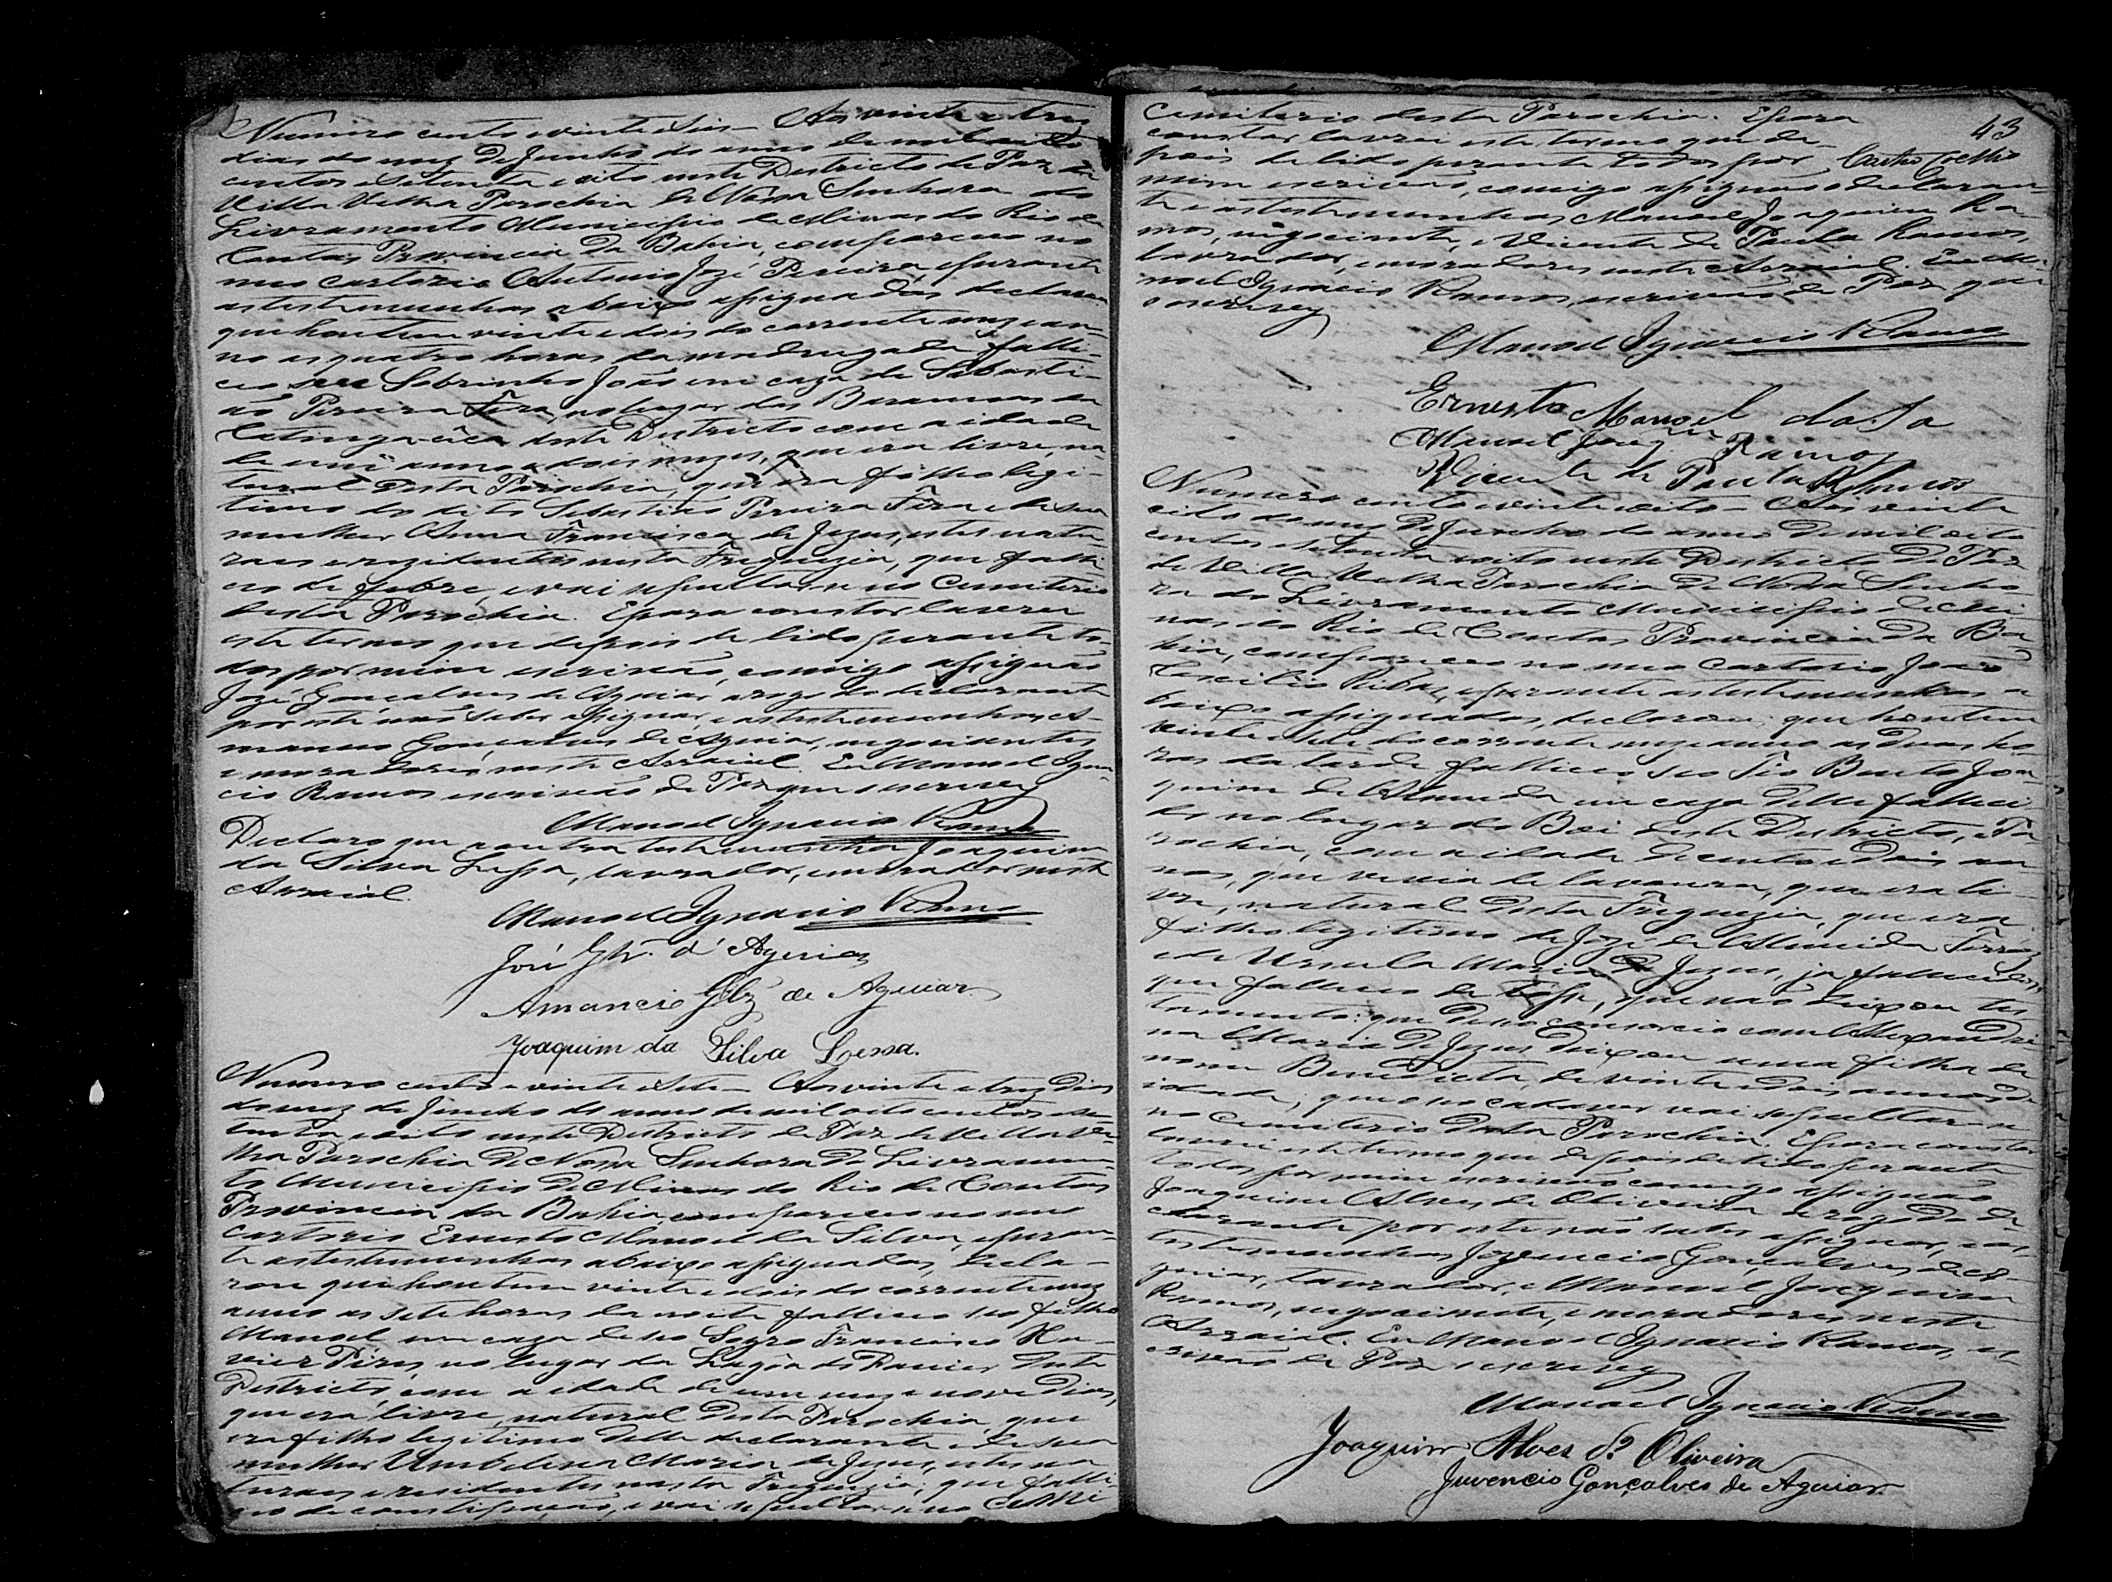 Numero cento e vinte e seis — Aos vinte e tres
dias do mez de Junho do anno de mil oito
centos e setenta e oito neste Districto de Paz da
Villa Velha Parochia de Nossa Senhora do
Livramento Municipio de Minas do Rio de
Contas Provincia da Bahia, compareceu no
meu Cartorio Antonio José Pereira e perante
as testemunhas abaixo assignadas declarou
que hontem vinte e dois do corrente mez e an-
no as quatro horas da madrugada falle-
ceo seu Sobrinho João em caza de Sebasti-
ão Pereira no lugar das Baraunas da
Catinga deste Districto com a idade
de um anno e dois mezes, que era livre, na-
tural desta Parochia, que era filho legi-
timo do dito Sebastião Pereira e de sua
mulher Anna Francisca de Jezus, estes natu-
raes e rezidentes nesta Freguezia, que falle-
ceo de febre, e vai sepultar-se no Cemiterio
desta Parochia. E para constar lavrei
este termo que depois de lido perante to-
dos por mim escrivão, comigo assignão
José Gonçalves de Aguiar a rogo do declarante
por este não saber assignar, e as testemunhas A-
mancio Gonçalves de Aguiar, negociantes
e moradores neste Arraial. Eu Manoel Igna-
cio Ramos escrivão de Paz que o escrevy
Manoel Ignacio Ramos
Declaro que a outra testemunha Joaquim
da Silva Lessa, lavrador, e morador neste
Arraial.
Manoel Ignacio Ramos
José Glz. d'Aguiar
Amancio Glz de Aguiar
Joaquim da Silva Lessa.
Numero cento e vinte e sete — Aos vinte e tres dias
do mez de Junho do anno de mil oito centos e se-
tenta e oito neste Districto de Paz de Villa Ve-
lha Parochia de Nossa Senhora do Livramen-
to Municipio de Minas do Rio de Contas
Provincia da Bahia, compareceo no meu
Cartorio Ernesto Manoel da Silva, e peran-
te as testemunhas abaixo assignadas, decla-
rou que hontem vinte e dois do corrente mez
anno as sete horas da noite falleceo seo filho
Manoel em caza de seo Sogro Francisco Xa-
vier Pires, no lugar da Lagôa do deste
Districto, com a idade de um mez e nove dias,
que era livre, natural desta Parochia, que
era filho legitimo delle declarante e de sua
mulher Umbelina Maria de Jesus, estes na-
turaes e residentes nesta Freguezia, que falle-
ceo de constipação, e vai sepultar-se no
43
Cemiterio desta Parochia. E para
constar lavrei este termo que de-
pois de lido perante todos por
mim escrivão, comigo assignão o declaran-
te e as testemunhas Manoel Joaquim Ra-
mos, negociante, e Vicente de Paula Ramos,
lavrador, e moradores neste Arraial. Eu Ma-
noel Ignacio Ramos escrivão de Paz que
o escrevy
Manoel Ignacio Ramos
Ernesto Manoel da Sa
Manoel Joaqm Ramos
Vicente de Paula Ramos
Numero cento e vinte e oito — Aos vinte
oito do mez de Junho do anno de mil oito
centos e setenta e oito neste Districto de Paz
de Villa Velha Parochia de Nossa Senho-
ra do Livramento Municipio de Mi-
nas do Rio de Contas Provincia da Ba-
hia, compareceo no meo Cartorio João
e perante as testemunhas a
baixo assignadas, declarou, que hontem
vinte e sete do corrente mez e anno as duas ho-
ras da tarde falleceo seo Tio Bento Joa-
quim de Almeida em caza delle falleci-
do no lugar do Boi deste Districto, e Pa-
rochia, com a idade de cento e dois an-
nos, que vevia de lavoura, que era li-
vre, natural desta Freguezia, que era
filho legitimo de José de Almeida
e de Ursula Maria de Jezus, ja fallecidos,
que falleceo de , que não deixou tes-
tamento: que de seo consorcio com Alexandri-
na Maria de Jezus deixou uma filha de
nome Benedicta de vinte e dois annos de
idade; que o seo cadaver vai sepultar-se
no Cemiterio desta Parochia. E para constar
lavrei este termo que depois de lido perante
todos por mim escrivão comigo assignão
Joaquim Alves de Oliveira a rogo do de-
clarante por este não saber assignar, e as
testemunhas Juvencio Gonçalves de A-
guiar, lavrador, e Manoel Joaquim
Ramos, negociante, e moradores neste
Arraial. Eu Manoel Ignacio Ramos, es-
crivão de Paz o escrevy
Manoel Ignacio Ramos
Joaquim Alves d'Oliveira
Juvencio Gonçalves de Aguiar